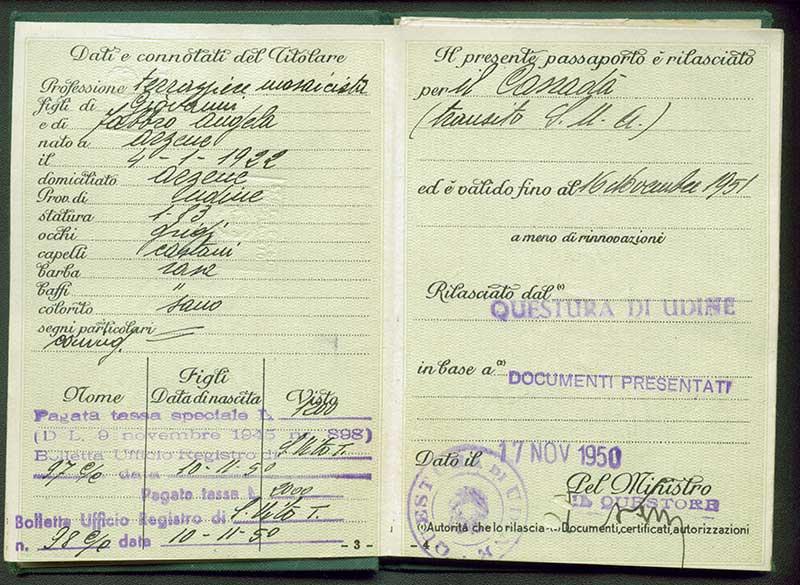 Dati e connotati del Titolare
Professione terrazziere mosaicista
figli di Giovanni
e di Fabbro Angela
nato a Arzene
il 4-1-1922
domiciliato Arzene
Prov. di Udine
statura 1.73
occhi grigi
capelli castani
barba rasa
baffi "
colorito sano
segni particolari —
Figli
Nome Data di nascita Visto
Pagata tassa speciale L. 1200
(D L. 9 novembre 1945 n. 898)
Bolletta Ufficio Registro di S. Vito T.
97 C/o data 10-11-50
Pagata tassa L. 2000
Bolletta Ufficio Registro di S. Vito T.
n. 98 C/o data 10-11-50
- 3 -
Il presente passaporto è rilasciato
per il Canadà
(transito S. U. A.)
ed è valido fino al 16 November 1951
a meno di rinnovazione
Rilasciato dal (1)
QUESTURA DI UDINE
in base a (2)
DOCUMENTI PRESENTATI
Dato il 17 NOV 1950
Pel Ministro
IL QUESTORE
QUESTURA DI UDINE
(1) Autorità che lo rilascia - (2) Documenti, certificati, autorizzazioni
- 4 -